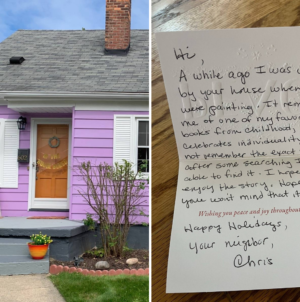 Hi,
A while ago I was
by your house when
were painting. It
me of one of my
books from childhood,
celebrates individuality
not remember the exact
after some searching
able to find it. I hope
enjoy the story.
you won't mind that
Wishing you peace and joy throughout
Happy Holidays,
your neighbor,
Chris